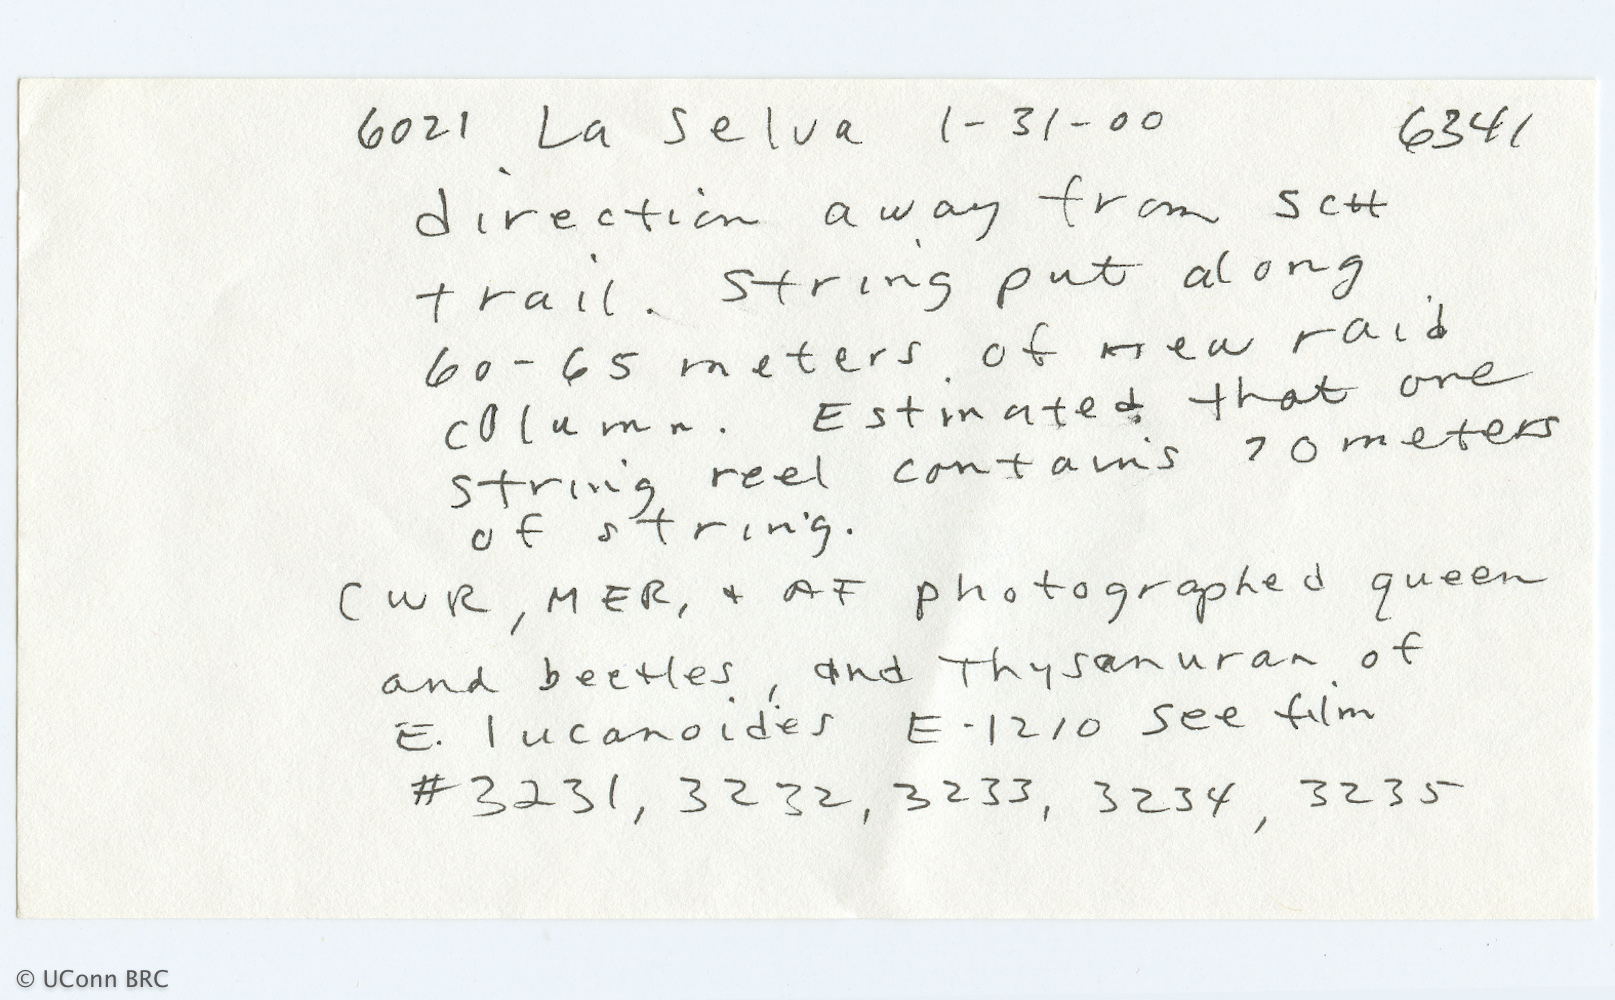 6021 La Selva 1-31-00 6341
direction away from SCH
trail. String put along
60-65 meters of new raid
column. Estimated that one
string reel contains 70 meters
of string.
CWR, MER, + AF photographed queen
and beetles, and Thysanuran of
E. lucanoides E-1210 see film
#3231, 3232, 3233, 3234, 3235
© UConn BRC